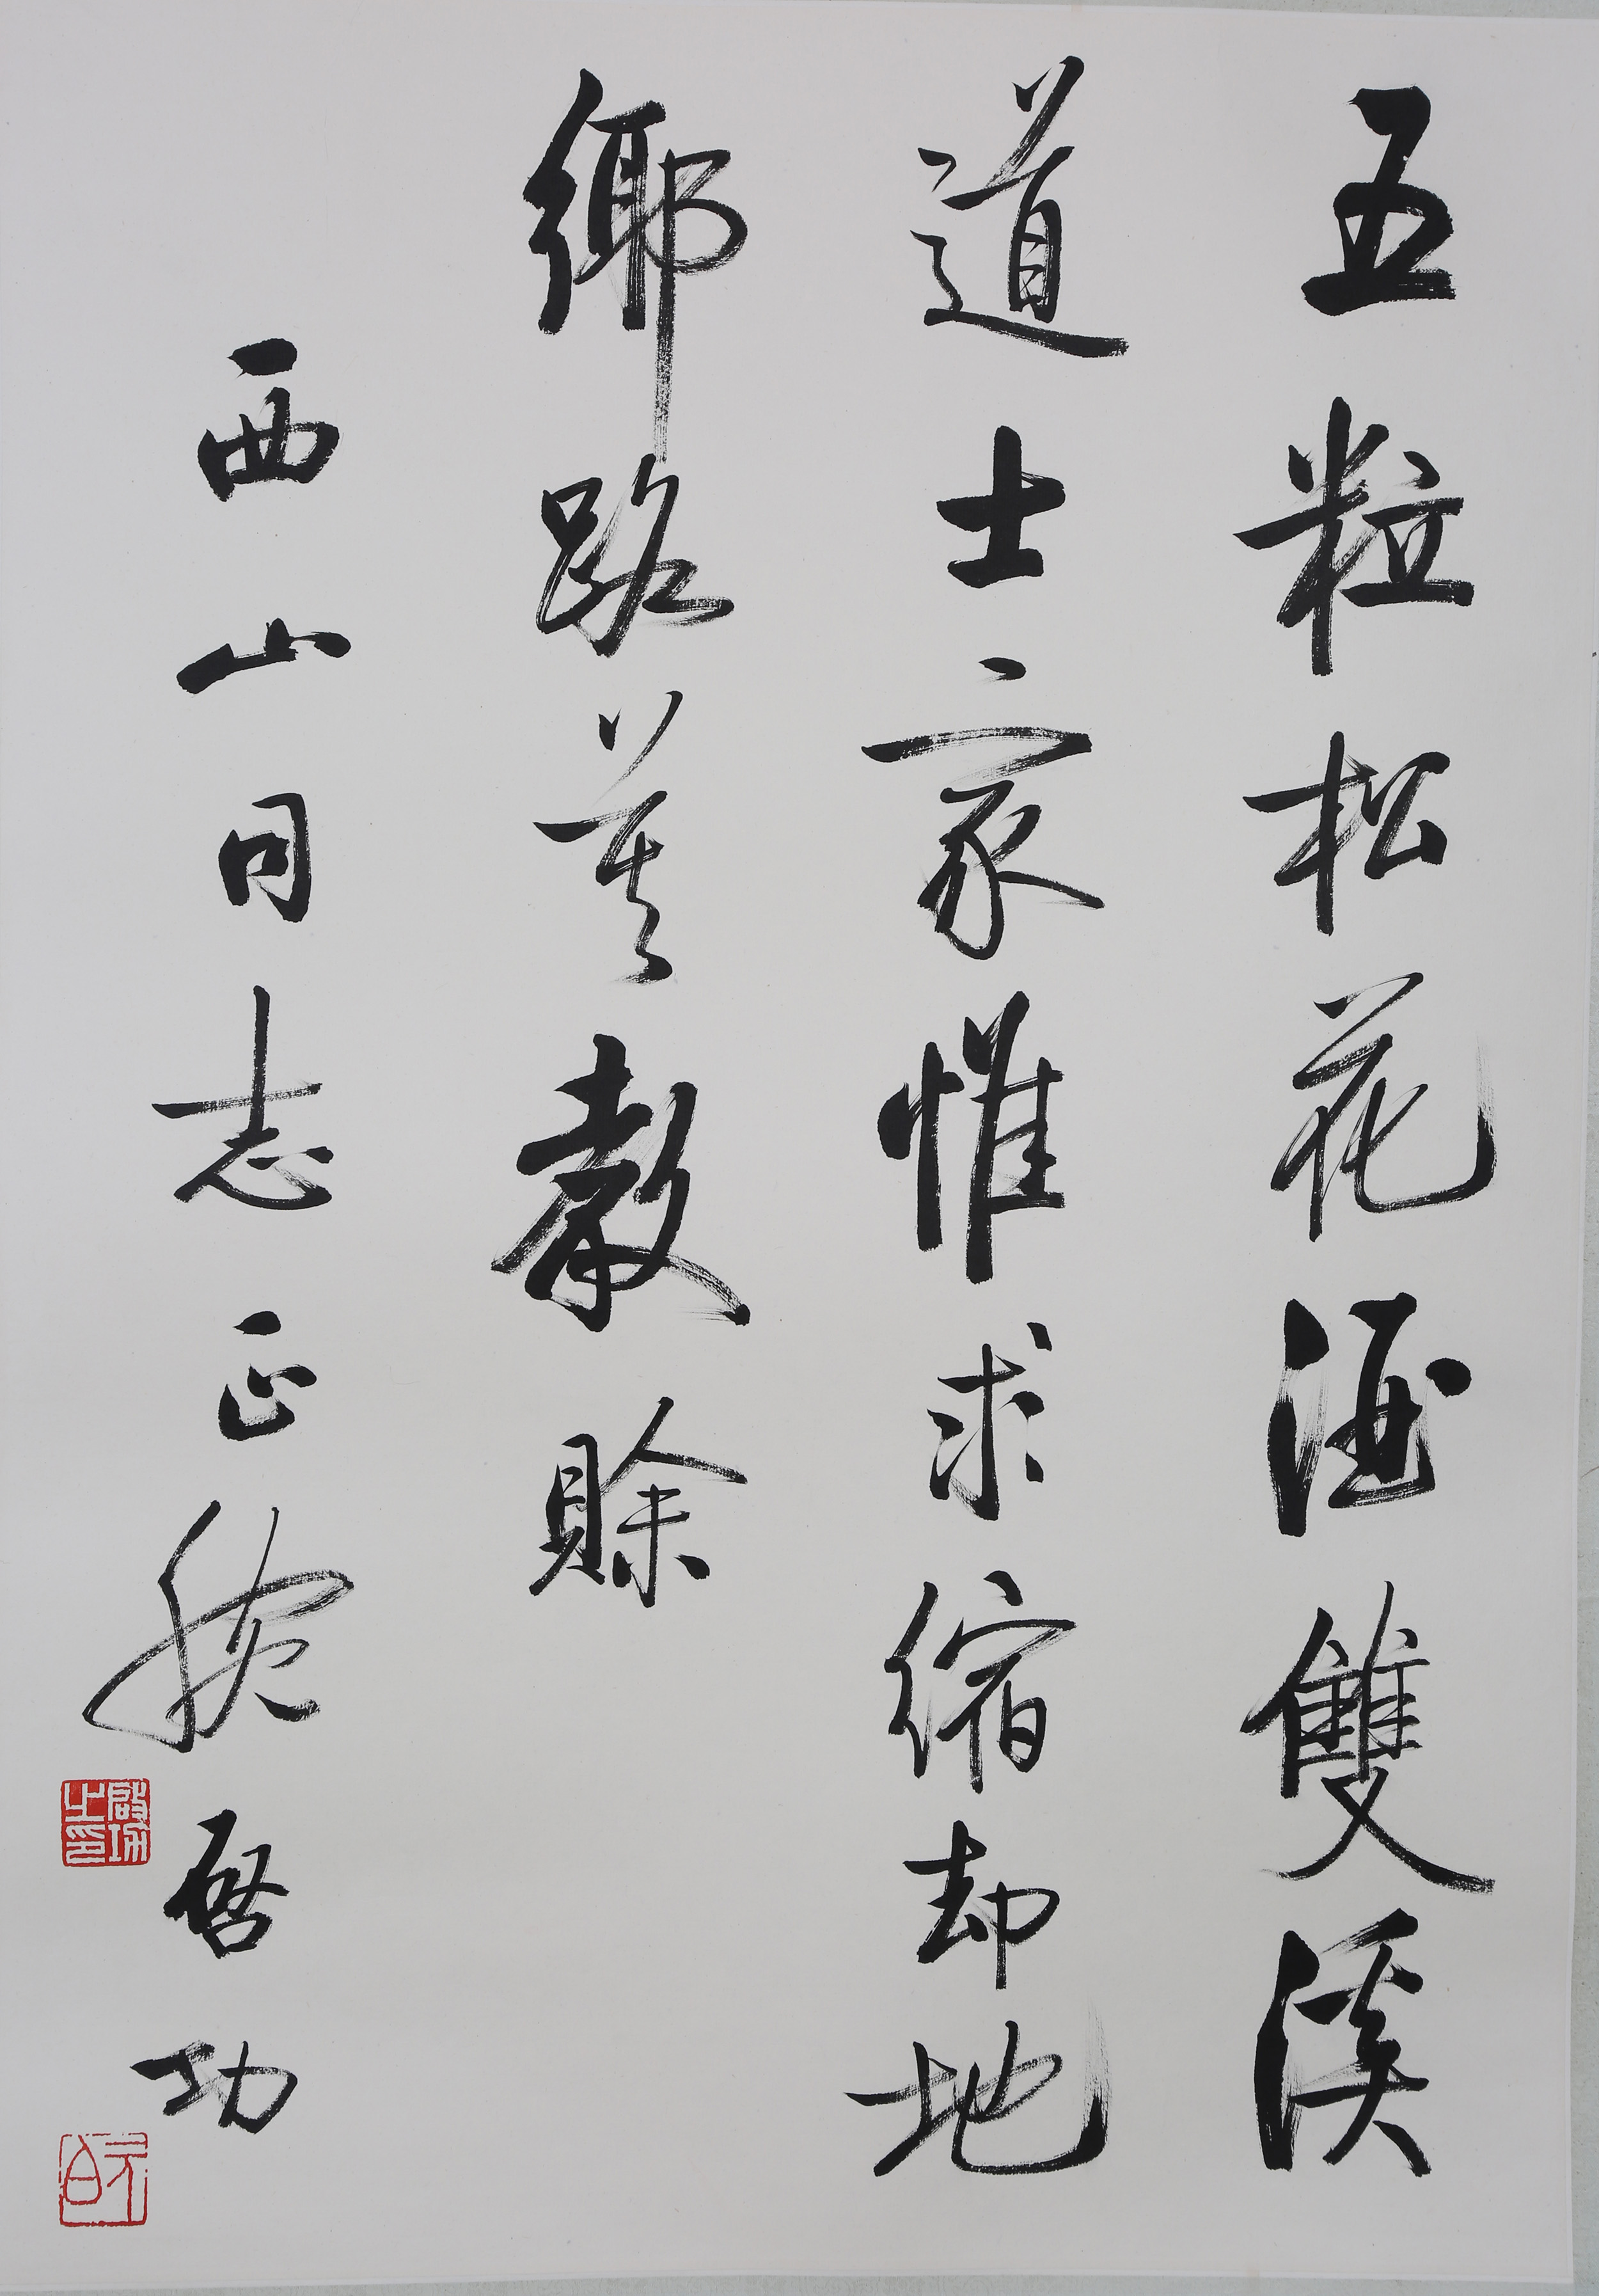 五粒松花酒雙溪
道士家惟求缩却地
鄉路莫教賒
西山同志正腕 啓功
啟功之印
元白